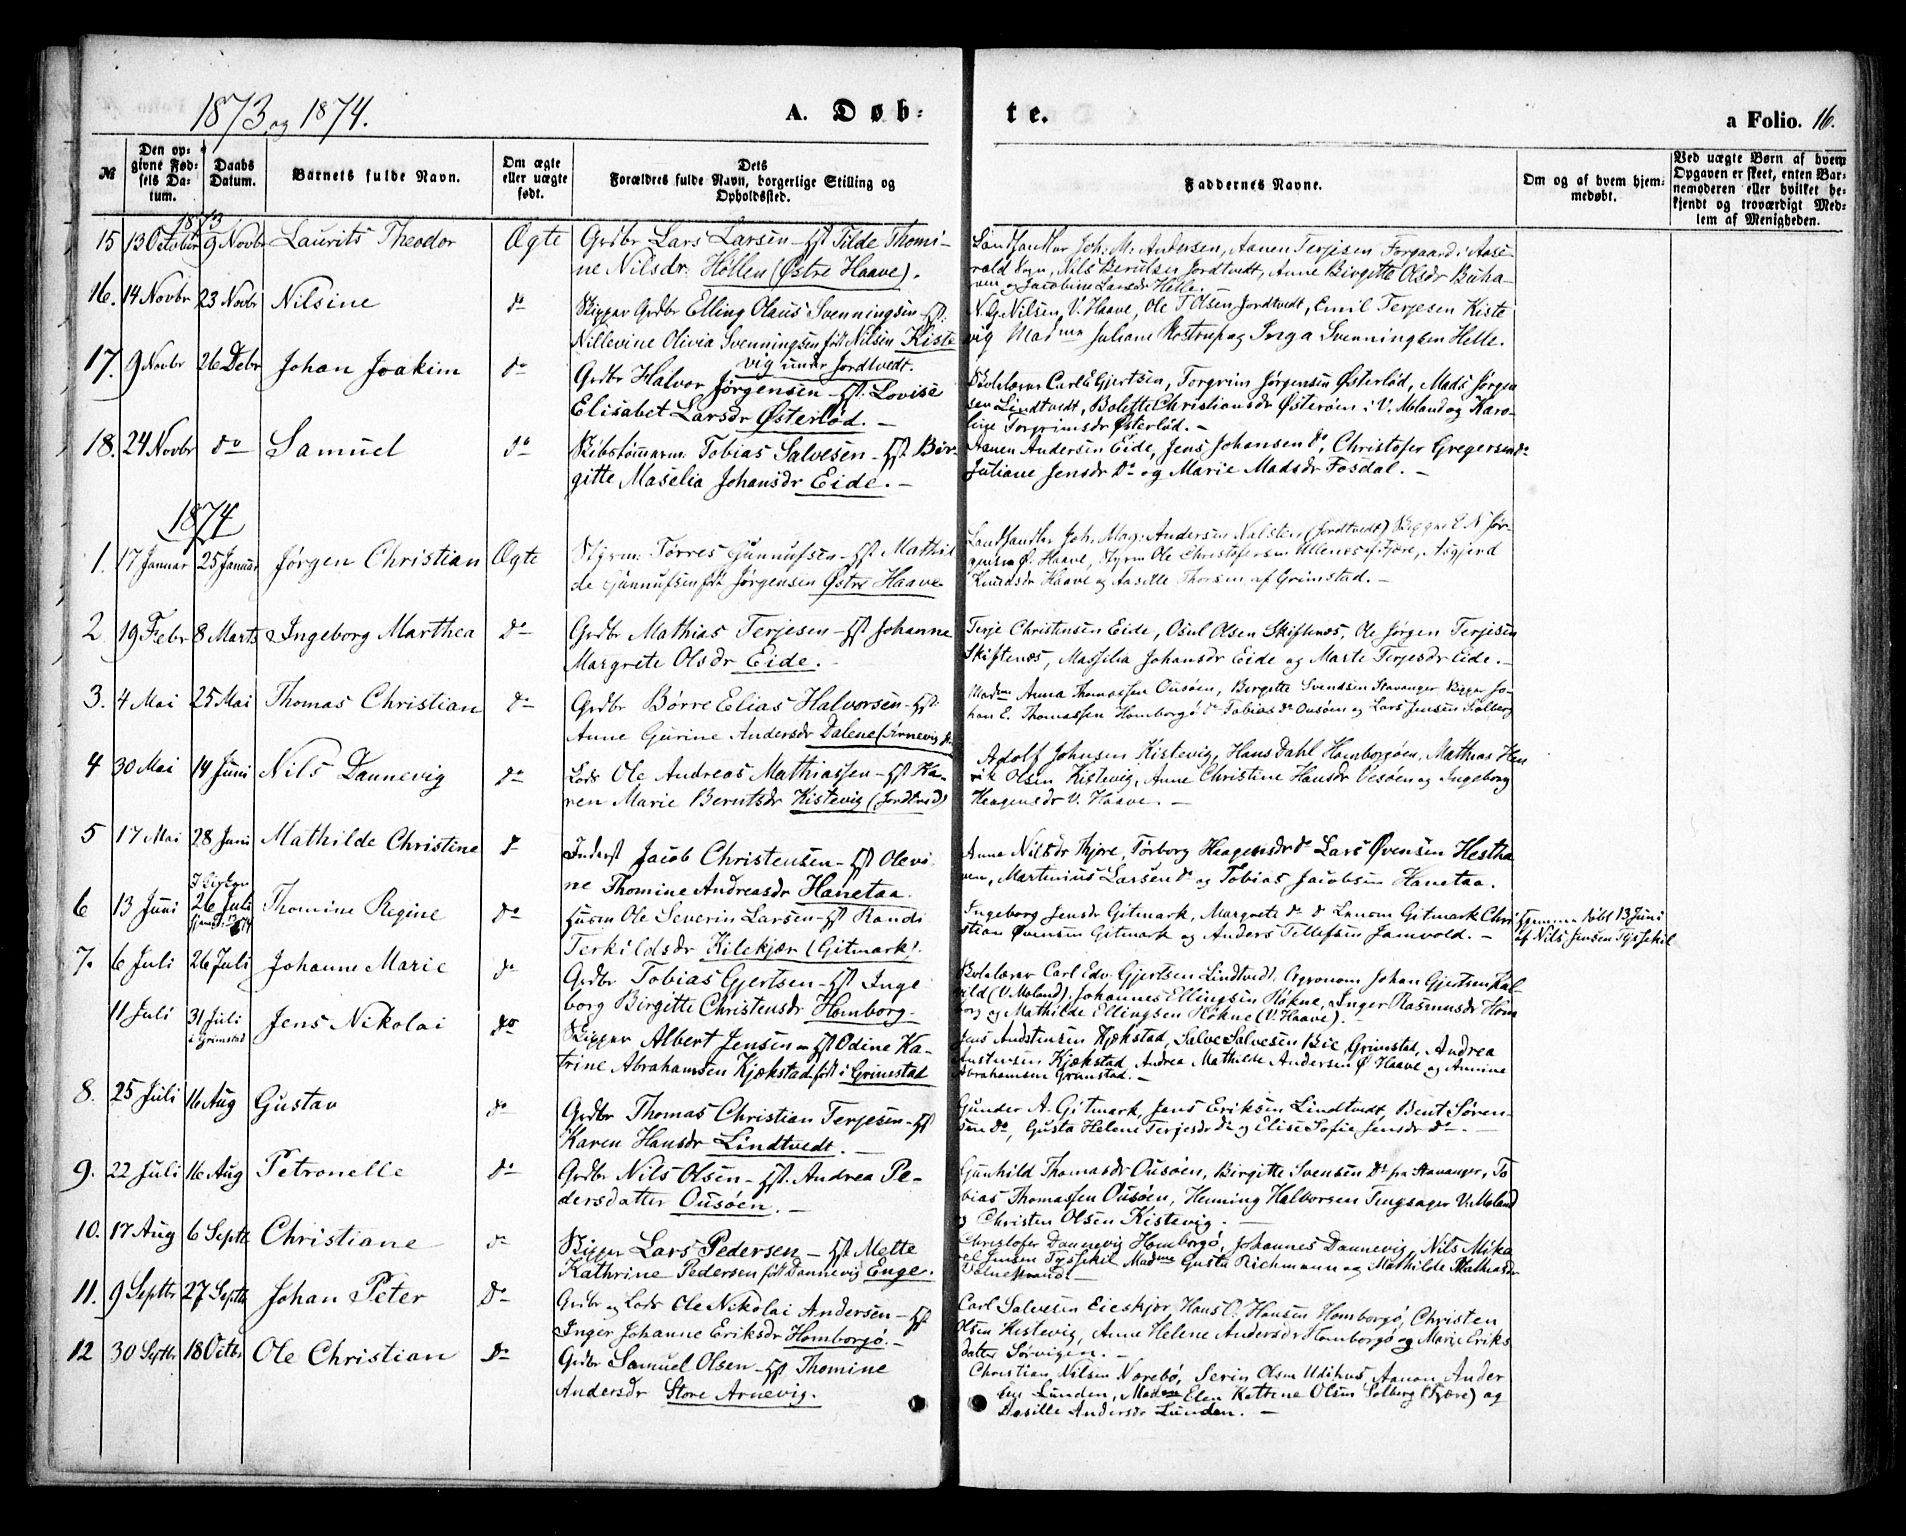 1873 og 1874.
A. Døb-
te.
a Folio. 16.
№
Den op-
givne Fød-
sels Da-
tum.
Daabs
Datum.
Barnets fulde Navn.
Om ægte
eller uægte
født.
Dets
Forældres fulde Navn, borgerlige Stilling og
Opholdssted.
Faddernes Navne.
Om og af hvem hjem-
medøbt.
Ved uægte Børn af hvem
Opgaven er skeet, enten Bar-
nemoderen eller hvilket be-
kjendt og troværdigt Med-
lem af Menigheden.
1873
15 13 October 9 Novbr Laurits Theodor Ægte Grdbr Lars Larsen – Hst Tilde Thomi-
ne Nilsdr. Hollen (Østre Haave).
Landhandler Joh. M. Andersen, Aanen Terjesen Forgaard i Aase-
rald Sogn, Nils Berulsen Jordtvedt, Anne Birgitte Olsdr Buha-
ven og Jacobine Larsdr Helle.
16. 14 Novbr 23 Novbr Nilsine do Skipper Grdbr Elling Olaus Svenningsen – Hst.
Nillevine Olivia Svenningsen født Nilsen Kiste
vig under Jordtvedt.
N. G. Nilsen, V. Haave, Ole T Olsen Jordtvedt, Emil Terjesen Kiste
vig Madme Juliane Rostrup og Inga Svenningsen Helle.
17. 9 Novbr 26 Debr Johan Joakim do Grdbr Halvor Jørgensen – Hst. Lovise
Elisabet Larsdr Østerlød. –
Skolelærer Carl E Gjertsen, Torgrim Jørgensen Østerlød, Mads Jørgen
sen Lindtvedt, Bolette Christiansdr Østerøen i V. Moland og Karo-
line Torgrimsdr Østerlød. –
18. 24 Novbr do Samuel do Skibstømmerm: Tobias Salvesen – Hst Bir-
gitte Maselia Johansdr Eide. –
Aanen Andersen Eide, Jens Johansen do, Christofer Gregersen do
Juliane Jensdr do og Marie Madsdr Fosdal. –
1874
1. 17 Januar 25 Januar Jørgen Christian Ægte Styrm: Torres Gunnufsen – Hst Mathil
de Gunnufsen født Jørgensen Østre Haave
Landhandler Joh. Mag. Andersen (Jordtvedt) Skipper E N Jør-
gensen Ø. Haave, Styrm Ole Christofersen Fjære, Asgjerd
Knudsdr Haave og Aasille Thorsen af Grimstad. –
2 19 Febr 8 Marts Ingeborg Marthea do Grdbr Mathias Terjesen – Hst Johanne
Margrete Olsdr Eide. –
Terje Christensen Eide, Osul Olsen Skiftenæs, Ole Jørgen Terjesen
Skiftenæs, Massilia Johansdr Eide og Marte Terjesdr Eide. –
3. 4 Mai 25 Mai Thomas Christian do Grdbr Børre Elias Halvorsen – Hst.
Anne Gurine Andersdr Dalene
Madme Anna Thomassen Ousøen, Birgitte Svendsen Stavanger, Skipper Jo-
han E. Thomassen Homborgø do Tobias do Ousøen og Lars Jensen Solberg
4 30 Mai 14 Juni Nils Dannevig do Lods Ole Andreas Mathiassen – Hst Ka-
ren Marie Berntsdr Kistevig (Jordtvedt)
Adolf Johnsen Kistevig, Hans Dahl Homborgøen, Mathias Hen
rik Olsen Kistevig, Anne Christine Hansdr Vesøen og Ingeborg
Haagensdr V. Haave. –
5 17 Mai 28 Juni Mathilde Christine do Inderst Jacob Christensen – Hst Olevi-
ne Thomine Andreasdr Hanetaa.
Anne Nilsdr Fjære, Torborg Haagensdr do Lars Øvensen Hestha
ven, Martinius Larsen do og Tobias Jacobsen Hanetaa.
6 13 Juni 26 Juli Thomine Regine do Husm Ole Severin Larsen – Hst Randi
Terkildsdr Kilekjær (Gitmark).
Ingeborg Jensdr Gitmark, Margrete do do Gitmark Chri-
stian Øvensen Gitmark og Anders Tellefsen Jamvold. –
Hjemmedøbt 13 Juni
af Nils Jensen Tysskil
7. 6 Juli 26 Juli Johanne Marie do Grdbr Tobias Gjertsen – Hst Inge
borg Birgitte Christensdr Homborg.
Skolelærer Carl Edv Gjertsen Lindtvedt, Agronom Johan Gjertsen Kal-
vild (V. Moland), Johannes Ellingsen Høkne, Inger Rasmusdr Hom
borg og Mathilde Ellingsen Høkne (V. Haave). –
11 Juli 31 Juli
i Grimstad
Jens Nikolai do Skipper Albert Jensen – Hst Odine Ka-
trine Abrahamsen Kjækstad født i Grimstad
Jens Andstensen Kjækstad, Salve Salvesen Bie, Grimstad, Andrea
Austensen Kjækstad, Andrea Mathilde Andersen Ø Haave og Annine
Abrahamsen Grimstad. –
8. 25 Juli 16 Aug Gustav do Grdbr Thomas Christian Terjesen – Hst
Karen Hansdr Lindtvedt. –
Gunder A. Gitmark, Jens Eriksen Lindtvedt, Bent Søren-
sen do, Gusta Helene Terjesdr do og Elise Sofie Jensdr do. –
9. 22 Juli 16 Aug Petronelle do Grdbr Nils Olsen – Hst. Andrea Pe-
dersdatter Ousøen. –
Gunhild Thomasdr Ousøen, Birgitte Svensen do fra Stavanger, To
bias Thomassen Ousøen, Henning Halvorsen Tingsager V. Moland
og Christen Olsen Kistevig. –
10. 17 Aug 6 Septbr Christiane do Skipper Lars Pedersen – Hst Mette
Kathrine Pedersen født Dannevig Enge.
Christofer Dannevig Homborgø, Johannes Dannevig, Nils Mika
el Jensen Tysskil Madme Gusta Richmann og Mathilde Mathiasdr
11. 9 Septbr 27 Septbr Johan Peter do Grdbr og Lods Ole Nikolai Andersen – Hst
Inger Johanne Eriksdr Homborgø. –
Carl Salvesen Eieskjør, Hans O. Hansen Homborgø, Christen
Olsen Kistevig, Anne Helene Andersdr Homborgø og Marie Eriks
datter Sørvigen. –
12 30 Septbr 18 Octbr Ole Christian do Grdbr Samuel Olsen – Hst Thomine
Andersdr Store Arnevig.
Christian Nilsen Nørebø, Serin Olsen Udihus, Aanon Ander
sen Lunden, Madme Elen Katrine Olsen Solberg (Fjære) og
Aasille Andersdr Lunden. –